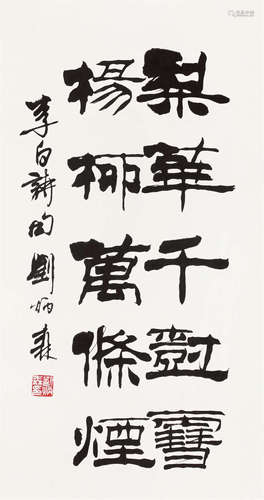 梨華千尌雪
楊柳萬條煙
李白詩句劉炳森